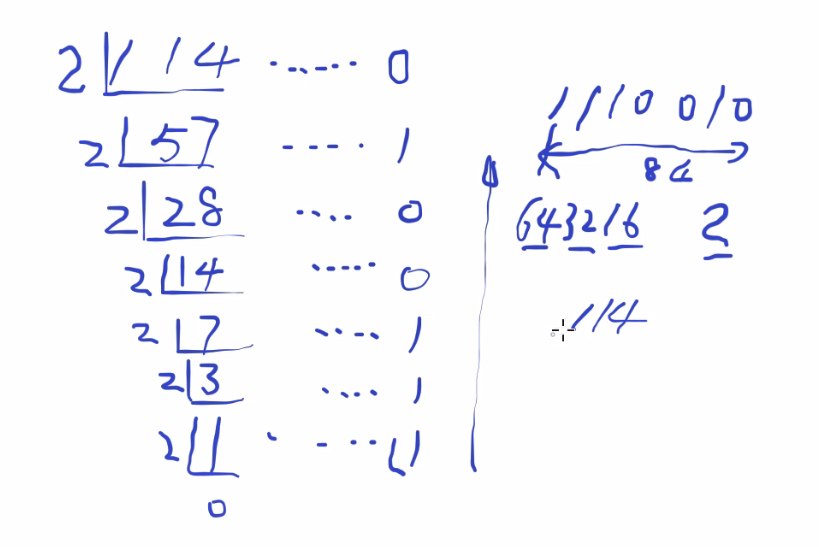 2 114 ...... 0
2 57 ..... 1
2 28 ..... 0
2 14 ..... 0
2 7 ..... 1
2 3 ..... 1
2 1 ..... 1
0
1110010
8
64 32 16 2
114